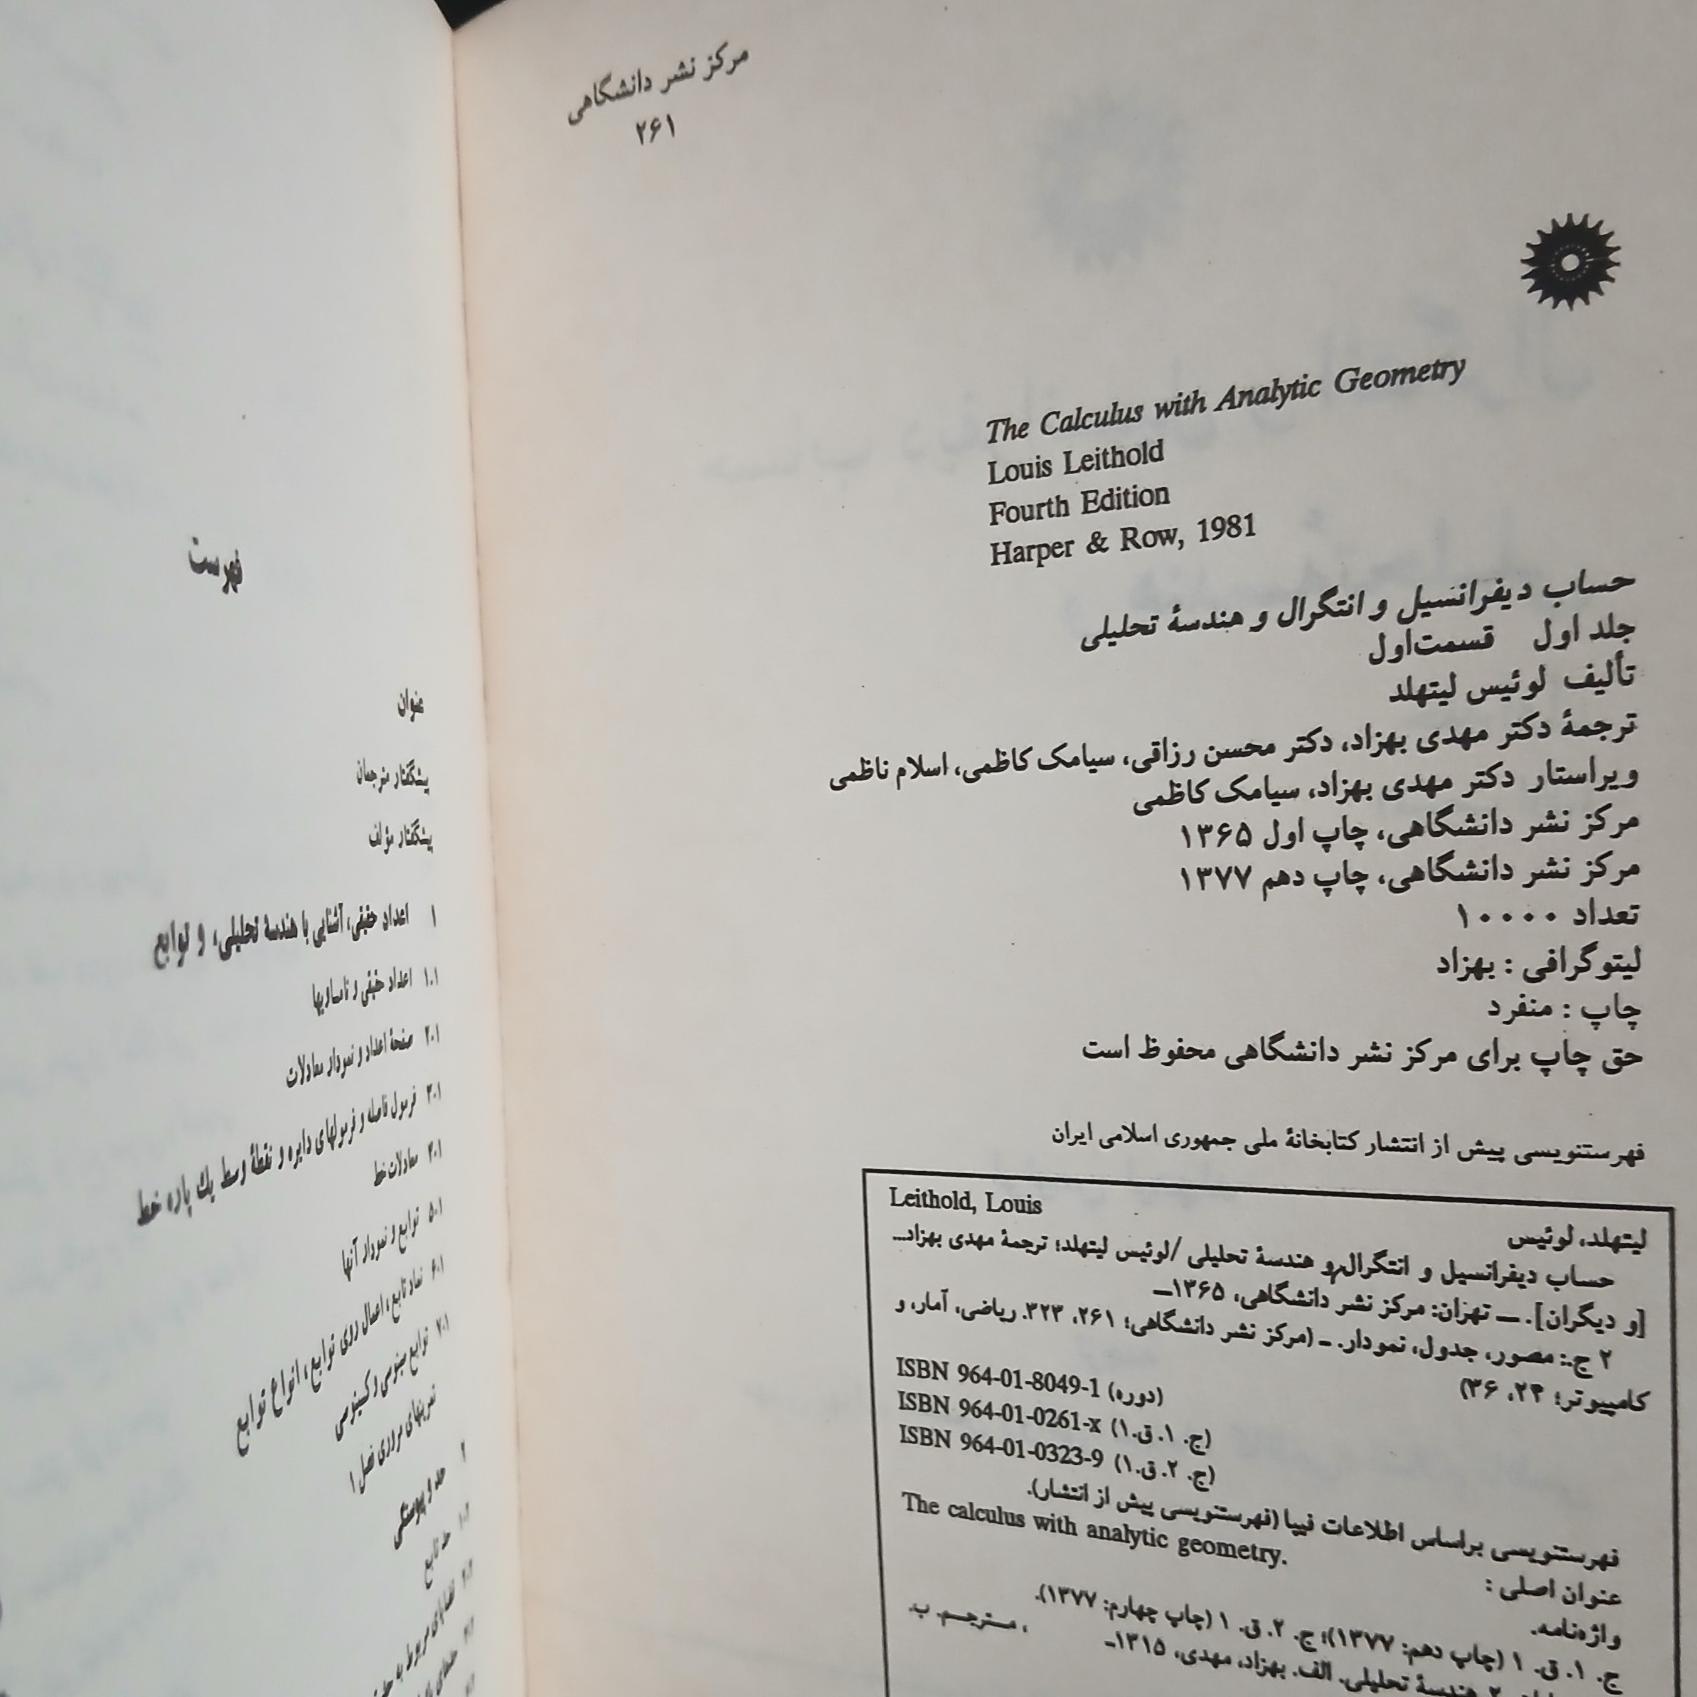 مرکز نشر دانشگاهی
۲۶۱
The Calculus with Analytic Geometry
Louis Leithold
Fourth Edition
Harper & Row, 1981
حساب دیفرانسیل و انتگرال و هندسهٔ تحلیلی
جلد اول قسمت‌اول
تألیف لوئیس لیتهلد
ترجمهٔ دکتر مهدی بهزاد، دکتر محسن رزاقی، سیامک کاظمی، اسلام ناظمی
ویراستار دکتر مهدی بهزاد، سیامک کاظمی
مرکز نشر دانشگاهی، چاپ اول ۱۳۶۵
مرکز نشر دانشگاهی، چاپ دهم ۱۳۷۷
تعداد ۱۰۰۰۰
لیتوگرافی : بهزاد
چاپ : منفرد
حق چاپ برای مرکز نشر دانشگاهی محفوظ است
فهرستنویسی پیش از انتشار کتابخانهٔ ملی جمهوری اسلامی ایران
Leithold, Louis
لیتهلد، لوئیس
حساب دیفرانسیل و انتگرال و هندسهٔ تحلیلی /لوئیس لیتهلد؛ ترجمهٔ مهدی بهزاد...
[و دیگران]. ــ تهران: مرکز نشر دانشگاهی، ۱۳۶۵ــ
۲ ج.: مصور، جدول، نمودار. ــ (مرکز نشر دانشگاهی؛ ۲۶۱، ۳۲۳. ریاضی، آمار، و
کامپیوتر؛ ۲۴، ۳۶)
ISBN 964-01-8049-1 (دوره)
ISBN 964-01-0261-x (ج. ۱. ق.۱)
ISBN 964-01-0323-9 (ج. ۲. ق.۱)
فهرستنویسی براساس اطلاعات فیپا (فهرستنویسی پیش از انتشار).
عنوان اصلی : The calculus with analytic geometry.
واژه‌نامه.
ج. ۱. ق. ۱ (چاپ دهم: ۱۳۷۷)؛ ج. ۲. ق. ۱ (چاپ چهارم: ۱۳۷۷).
هندسهٔ تحلیلی. الف. بهزاد، مهدی، ۱۳۱۵ــ ، مترجم. ب.
فهرست
عنوان
پیشگفتار مترجمان
پیشگفتار مؤلف
۱ اعداد حقیقی، آشنایی با هندسهٔ تحلیلی، و توابع
۱.۱ اعداد حقیقی و نامساویها
۲.۱ صفحهٔ اعداد و نمودار معادلات
۳.۱ فرمول فاصله و فرمولهای دایره و نقطهٔ وسط یک پاره خط
۴.۱ معادلات خط
۵.۱ توابع و نمودار آنها
۶.۱ نماد تابع، اعمال روی توابع، انواع توابع
۷.۱ توابع سینوسی و کسینوسی
تمرینهای مروری فصل ۱
۲ حد و پیوستگی
۱.۲ حد تابع
۲.۲ قضایای مربوط به
۳.۲